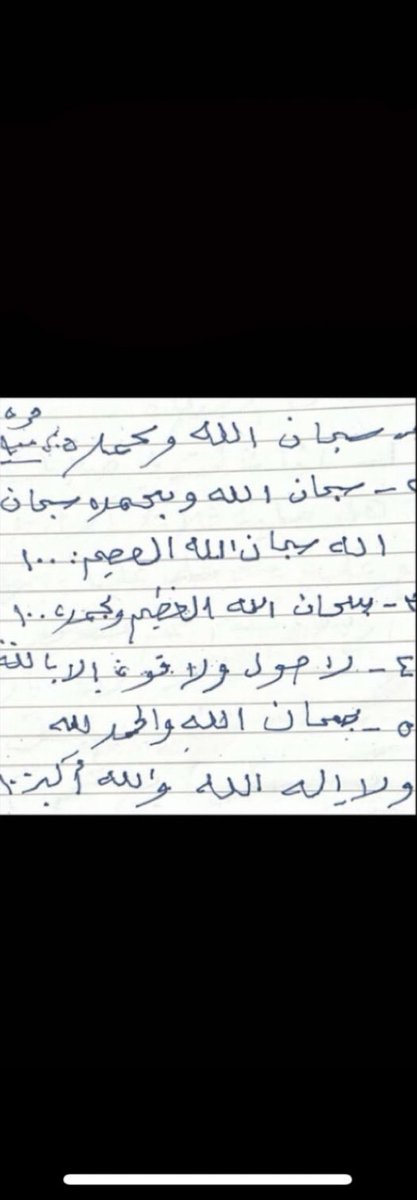 سبحان الله وبحمده مرة
٢ - سبحان الله وبحمده سبحان
الله سبحان الله العظيم: ١٠٠
٣ - سبحان الله العظيم وبحمده ١٠٠
٤ - لا حول ولا قوة إلا بالله
٥ - سبحان الله والحمد لله
ولا إله الله والله أكبر